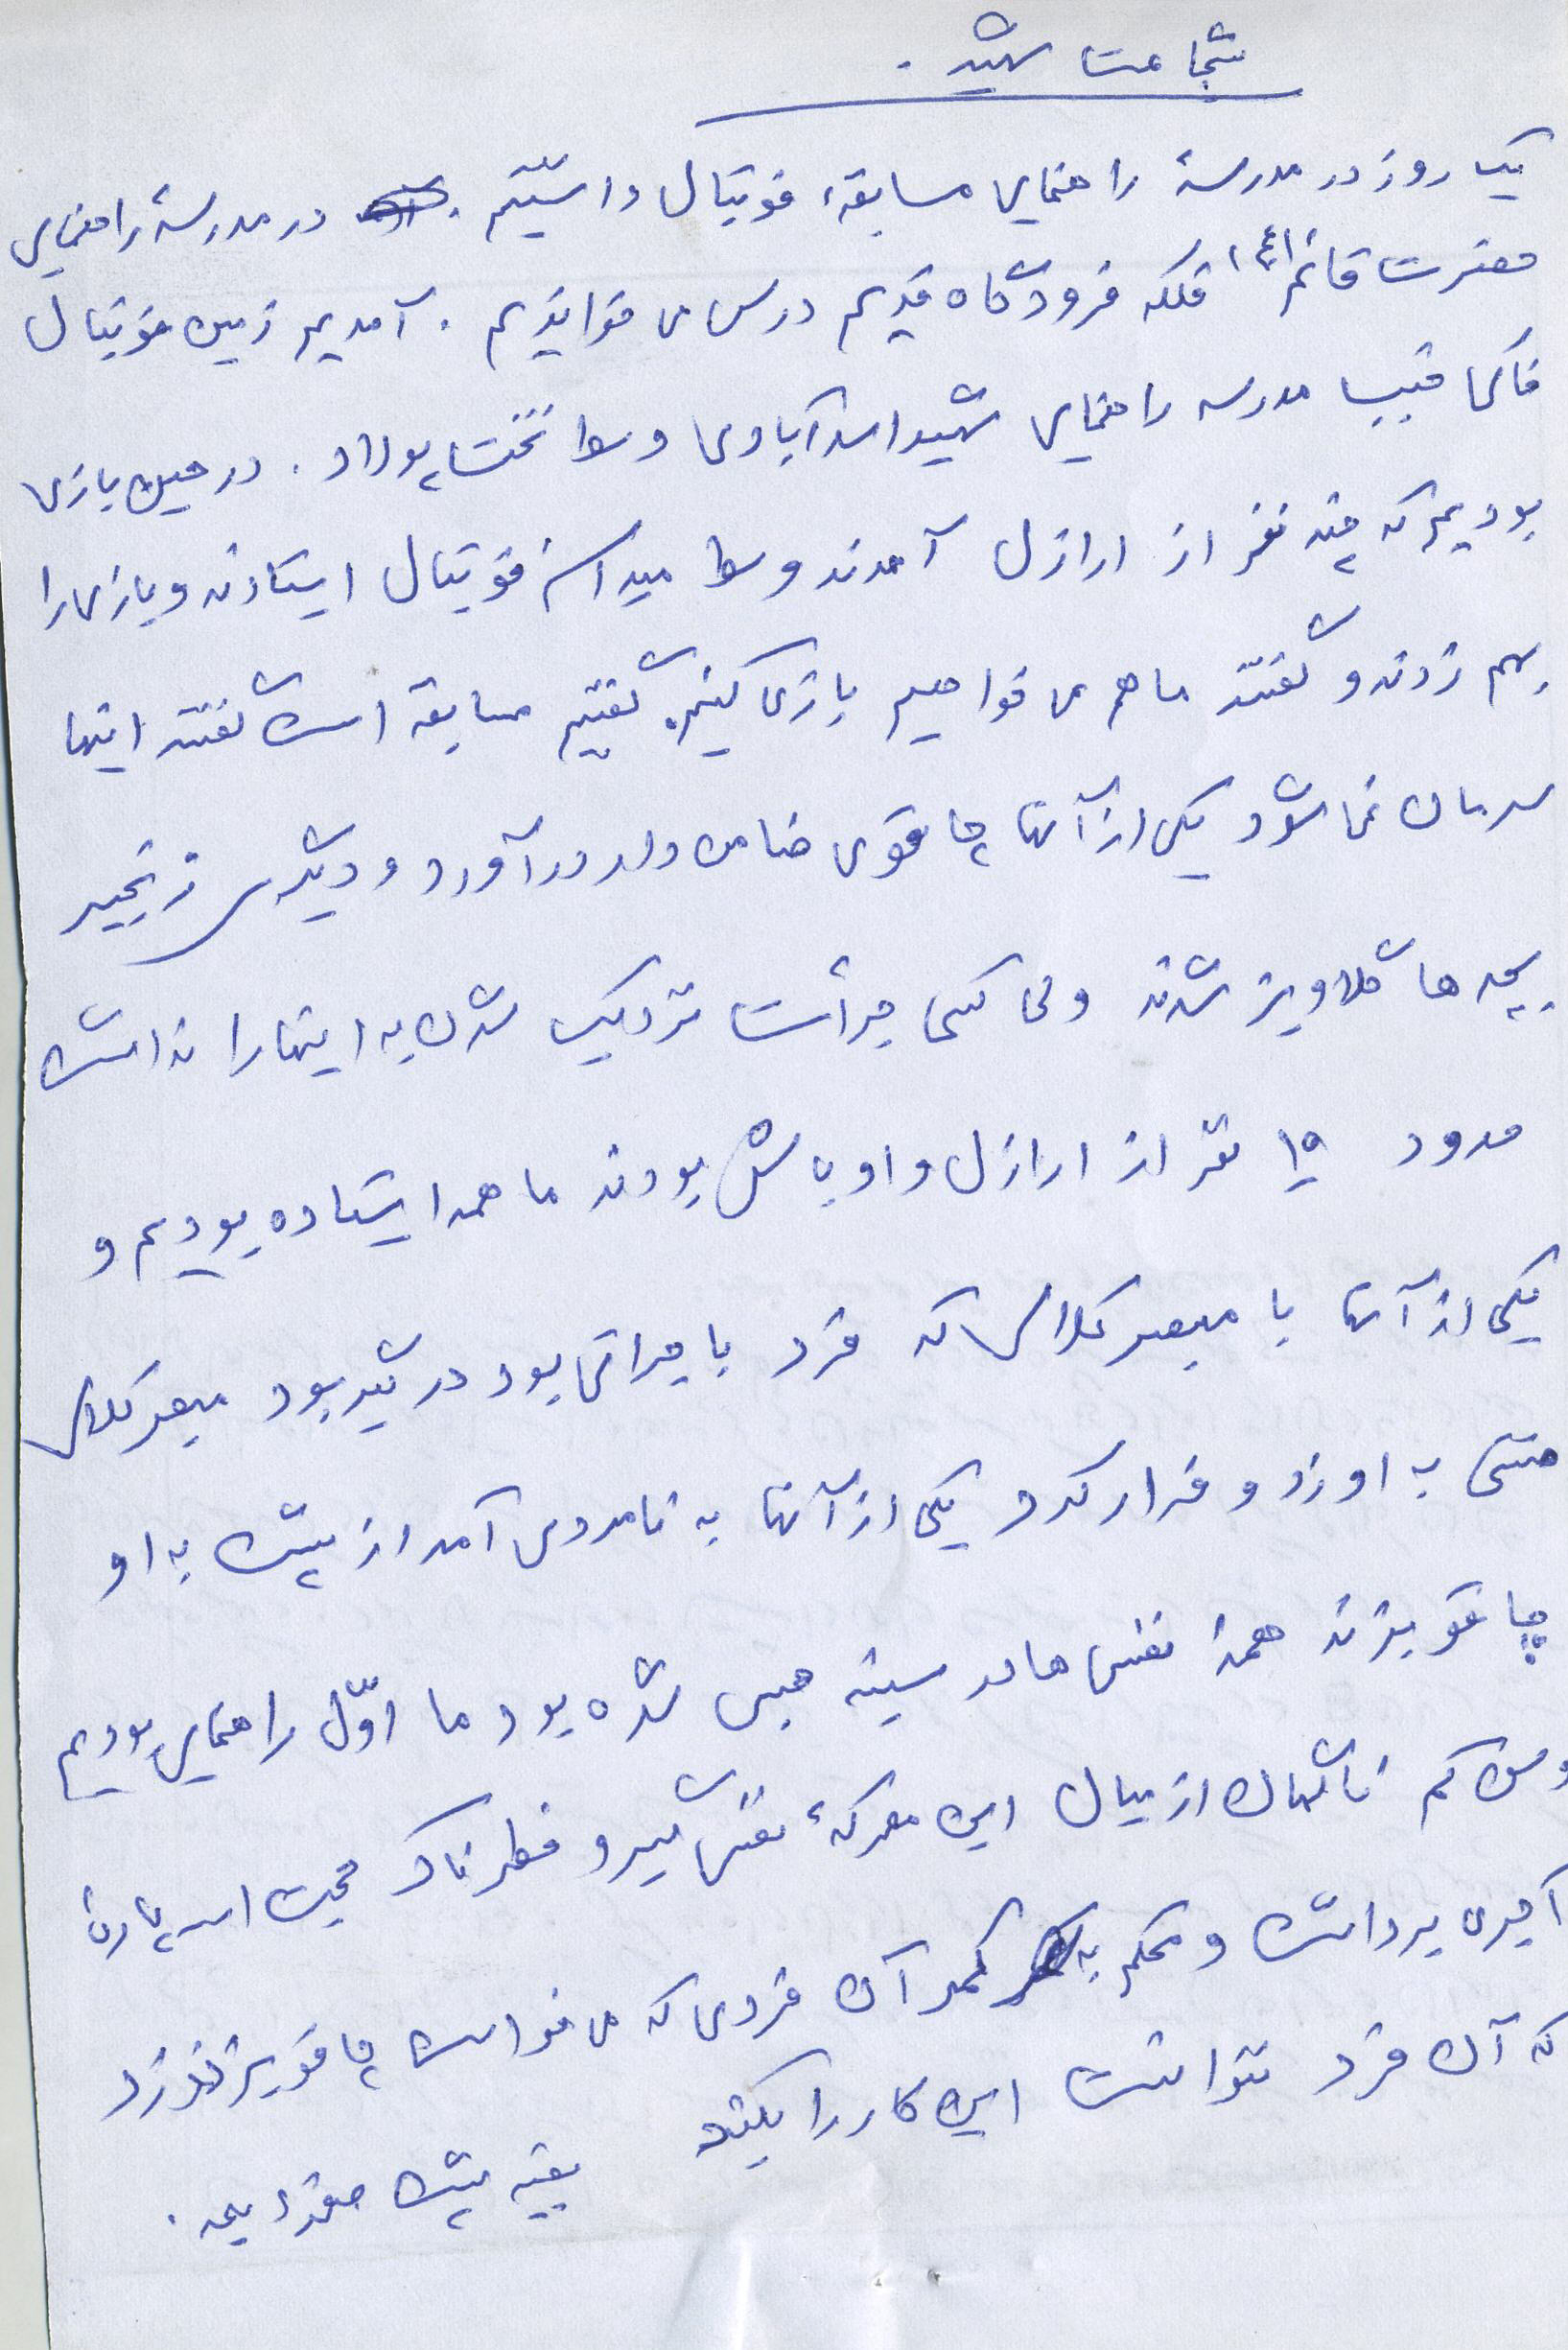 شجاعت شهید .
یک روز در مدرسهٔ راهنمایی مسابقهٔ فوتبال داشتیم . در مدرسهٔ راهنمایی
حضرت قائم (عج) فلکه فرودگاه قدیم درس می خواندیم . آمدیم زمین فوتبال
خاکی جنب مدرسه راهنمایی شهید اسدآبادی وسط تخت پولاد . در حین بازی
بودیم که چند نفر از ارازل آمدند وسط میدان فوتبال ایستادند و بازی را
بهم زدند و گفتند ما هم می خواهیم بازی کنیم گفتیم مسابقه است گفتند اینها
سرمان نمی شود یکی از آنها چاقوی ضامن دار درآورد و دیگری زنجیر
بچه ها گلاویز شدند ولی کسی جرأت نزدیک شدن به اینها را نداشت
حدود ۱۵ نفر از ارازل و اوباش بودند ما همه ایستاده بودیم و
یکی از آنها با مبصر کلاس که فرد با جراتی بود درگیر بود مبصر کلاس
مشتی به او زد و فرار کرد یکی از آنها به نامردی آمد از پشت به او
چاقو بزند همهٔ نفس ها در سینه حبس شده بود ما اوّل راهنمایی بودیم
و سن کم ناگهان از میان این معرکهٔ نفس گیر و خطرناک محبت اله پاره
آجری برداشت و محکم به کمر آن فردی که می خواست چاقو بزند زد
که آن فرد نتوانست این کار را بکند بقیه پشت صفحهٔ بعد .